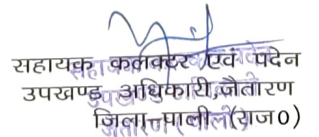 सहायक कलक्टर एवं पदेन
उपखण्ड अधिकारी, जैतारण
जिला-पाली (राज0)